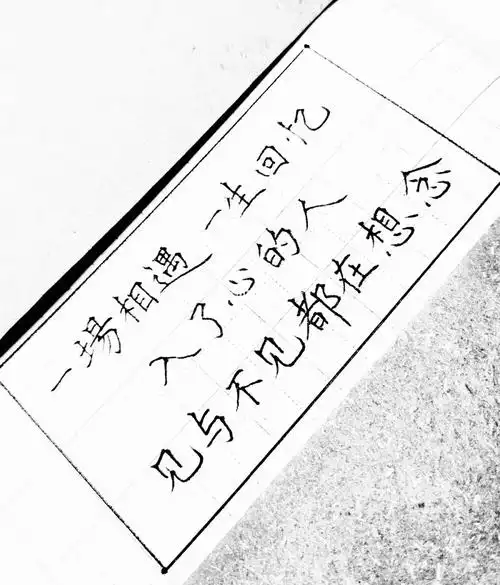 一場相遇 一生回忆
入了心的人
见与不见都在想念